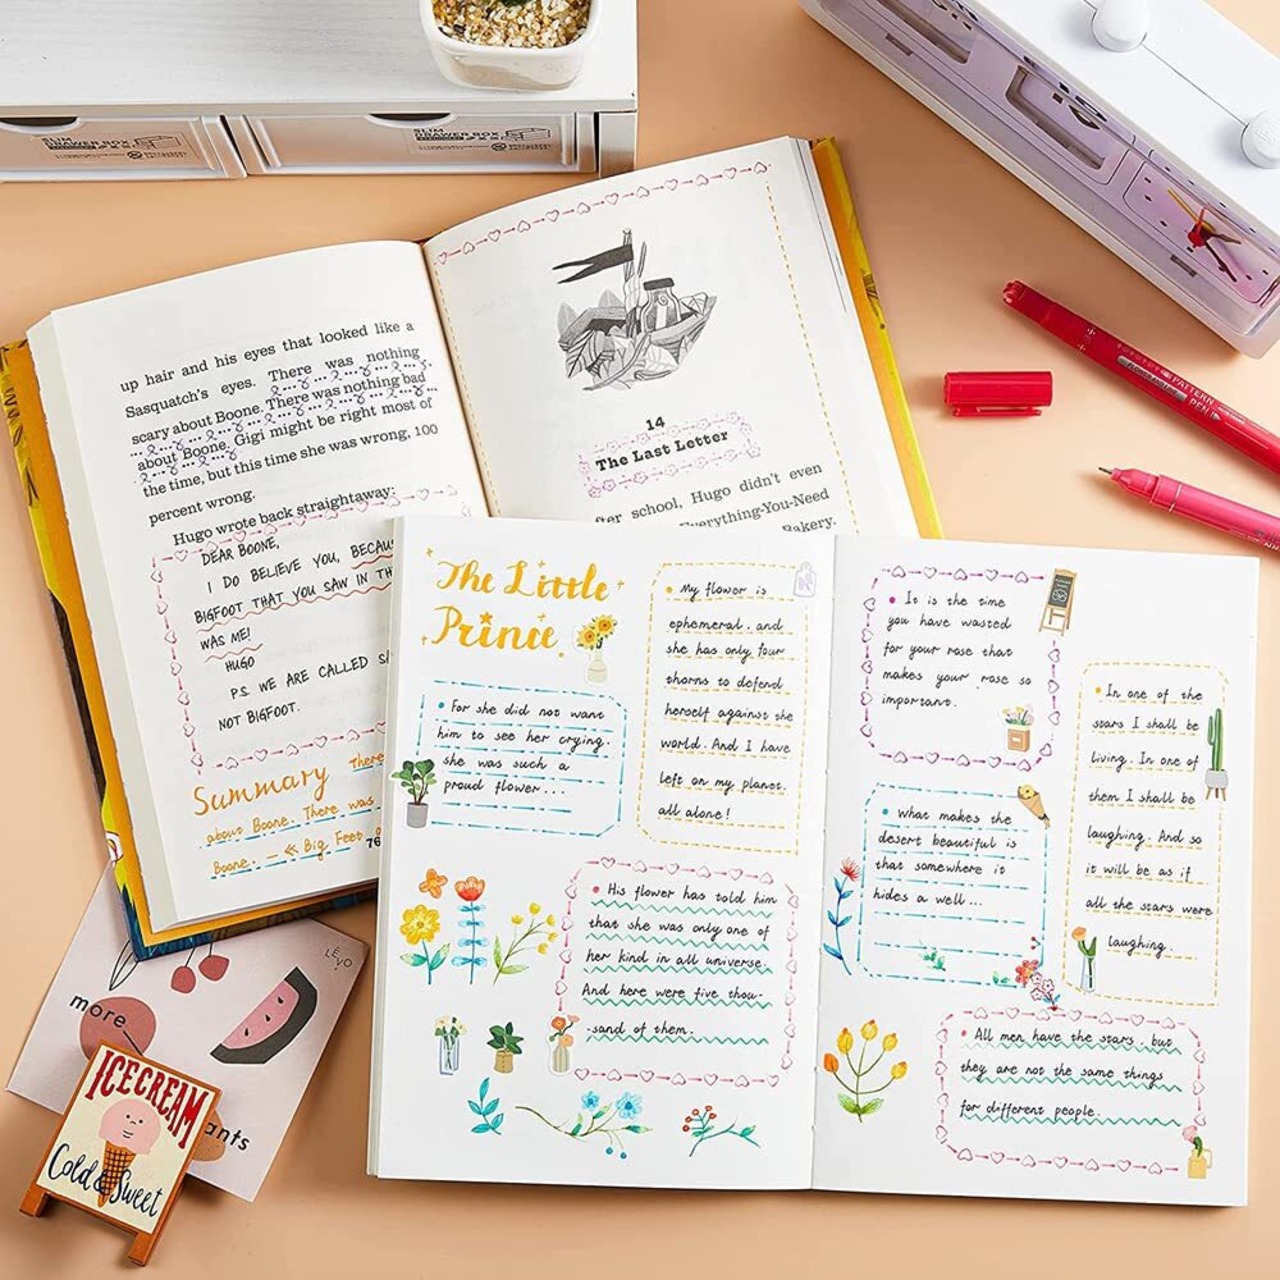 SLIM
DRAWER BOX
SLIM
DRAWER BOX
up hair and his eyes that looked like a
Sasquatch's eyes. There was nothing
scary about Boone. There was nothing bad
about Boone. Gigi might be right most of
the time, but this time she was wrong, 100
percent wrong.
Hugo wrote back straightaway:
DEAR BOONE,
I DO BELIEVE YOU, BECAU
BIGFOOT THAT YOU SAW IN TH
WAS ME!
HUGO
P.S. WE ARE CALLED SA
NOT BIGFOOT.
Summary There
about Boone. There was
Boone. — << Big Feet
76
14
The Last Letter
fter school, Hugo didn't even
Everything-You-Need
Bakery.
PATTERN
PEN
The Little
Prince.
For she did not want
him to see her crying.
she was such a
proud flower...
My flower is
ephemeral. and
she has only four
thorns to defend
herself against the
world. And I have
left on my planet.
all alone!
His flower has told him
that she was only one of
her kind in all universe.
And here were five thou-
-sand of them.
It is the time
you have wasted
for your rose that
makes your rose so
important.
What makes the
desert beautiful is
that somewhere it
hides a well...
In one of the
stars I shall be
living. In one of
them I shall be
laughing. And so
it will be as if
all the stars were
laughing.
All men have the stars. but
they are not the same things
for different people.
LEVO
more
ants
ICECREAM
Cold & Sweet